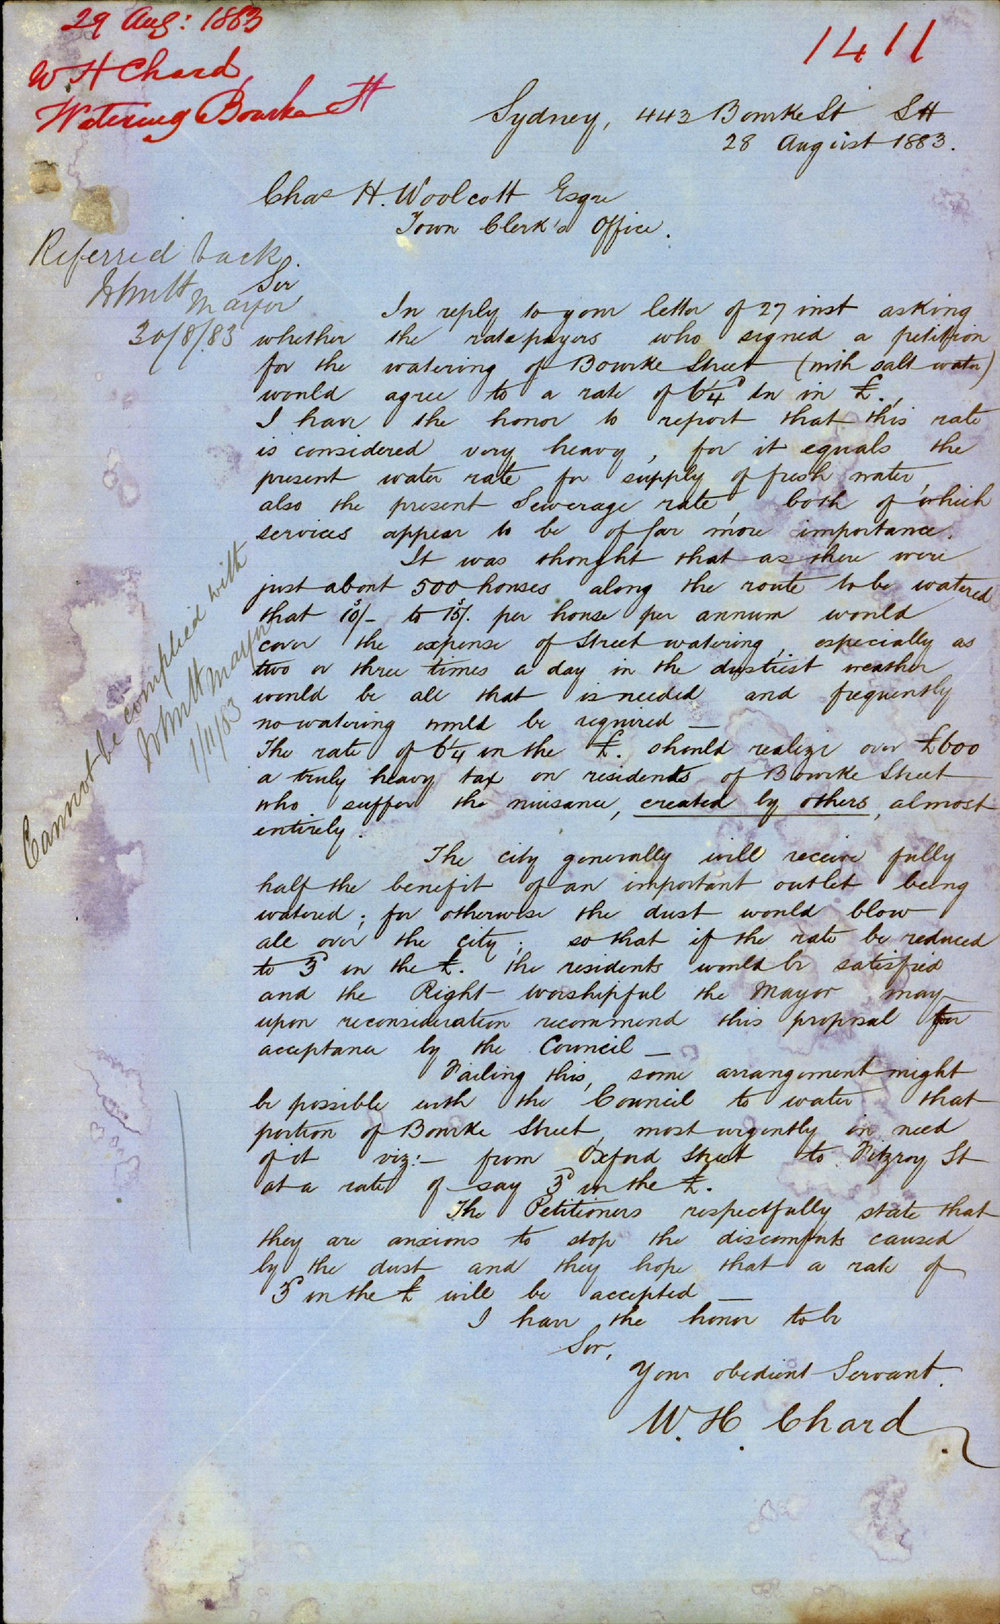 29 Aug: 1883
W H Chard
Watering Bourke St
1411
Sydney, 443 Bourke St SH
28 August 1883.
Chas H. Woolcott Esqre
Town Clerk's Office.
Referred back.
Mayor
30/8/83
Sir
In reply to your letter of 27 inst asking
whether the ratepayers who signed a petition
for the watering of Bourke Street (with salt water)
would agree to a rate of 6¼d in £.
I have the honor to report that this rate
is considered very heavy, for it equals the
present water rate for supply of fresh water,
also the present Sewerage rate, both of which
services appear to be of far more importance.
It was thought that as there were
just about 500 houses along the route to be watered
that 10/- to 15/- per house per annum would
cover the expense of Street watering, especially as
two or three times a day in the dustiest weather
would be all that is needed and frequently
no watering would be required —
The rate of 6¼ in the £. should realize over £600
a truly heavy tax on residents of Bourke Street
who suffer the nuisance, created by others, almost
entirely.
Cannot be complied with
Mayor
1/11/83
The city generally will receive fully
half the benefit of an important outlet being
watered; for otherwise the dust would blow
all over the city; so that if the rate be reduced
to 3d in the £. the residents would be satisfied
and the Right worshipful the Mayor may
upon reconsideration recommend this proposal for
acceptance by the Council —
Failing this, some arrangement might
be possible with the Council to water that
portion of Bourke Street, most urgently in need
of it viz:- from Oxford Street to Fitzroy St
at a rate of say 3d in the £.
The Petitioners respectfully state that
they are anxious to stop the discomforts caused
by the dust and they hope that a rate of
3d in the £ will be accepted —
I have the honor to be
Sir,
Your obedient Servant.
W. H. Chard.